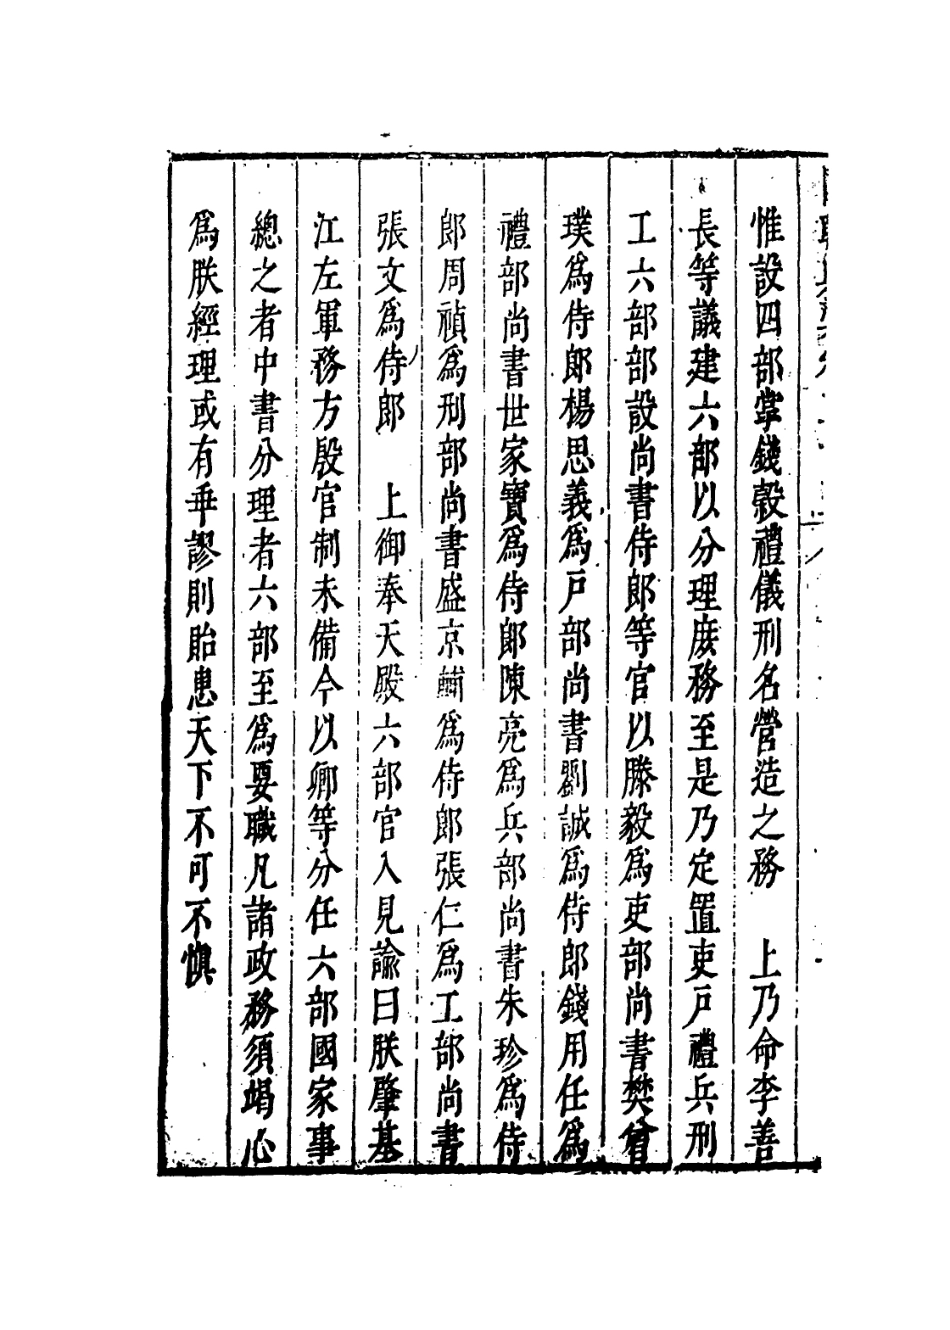 惟設四部掌錢穀禮儀刑名營造之務　上乃命李善
長等議建六部以分理庻務至是乃定置吏戶禮兵刑
工六部部設尚書侍郎等官以滕毅爲吏部尚書樊曾
璞爲侍郎楊思義爲戶部尚書劉誠爲侍郎錢用任爲
禮部尚書世家寶爲侍郎陳亮爲兵部尚書朱珍爲侍
郎周禎爲刑部尚書盛京輔爲侍郎張仁爲工部尚書
張文爲侍郎　上御奉天殿六部官入見諭曰朕肇基
江左軍務方殷官制未備今以卿等分任六部國家事
總之者中書分理者六部至爲要職凡諸政務須竭心
爲朕經理或有乖謬則貽患天下不可不慎